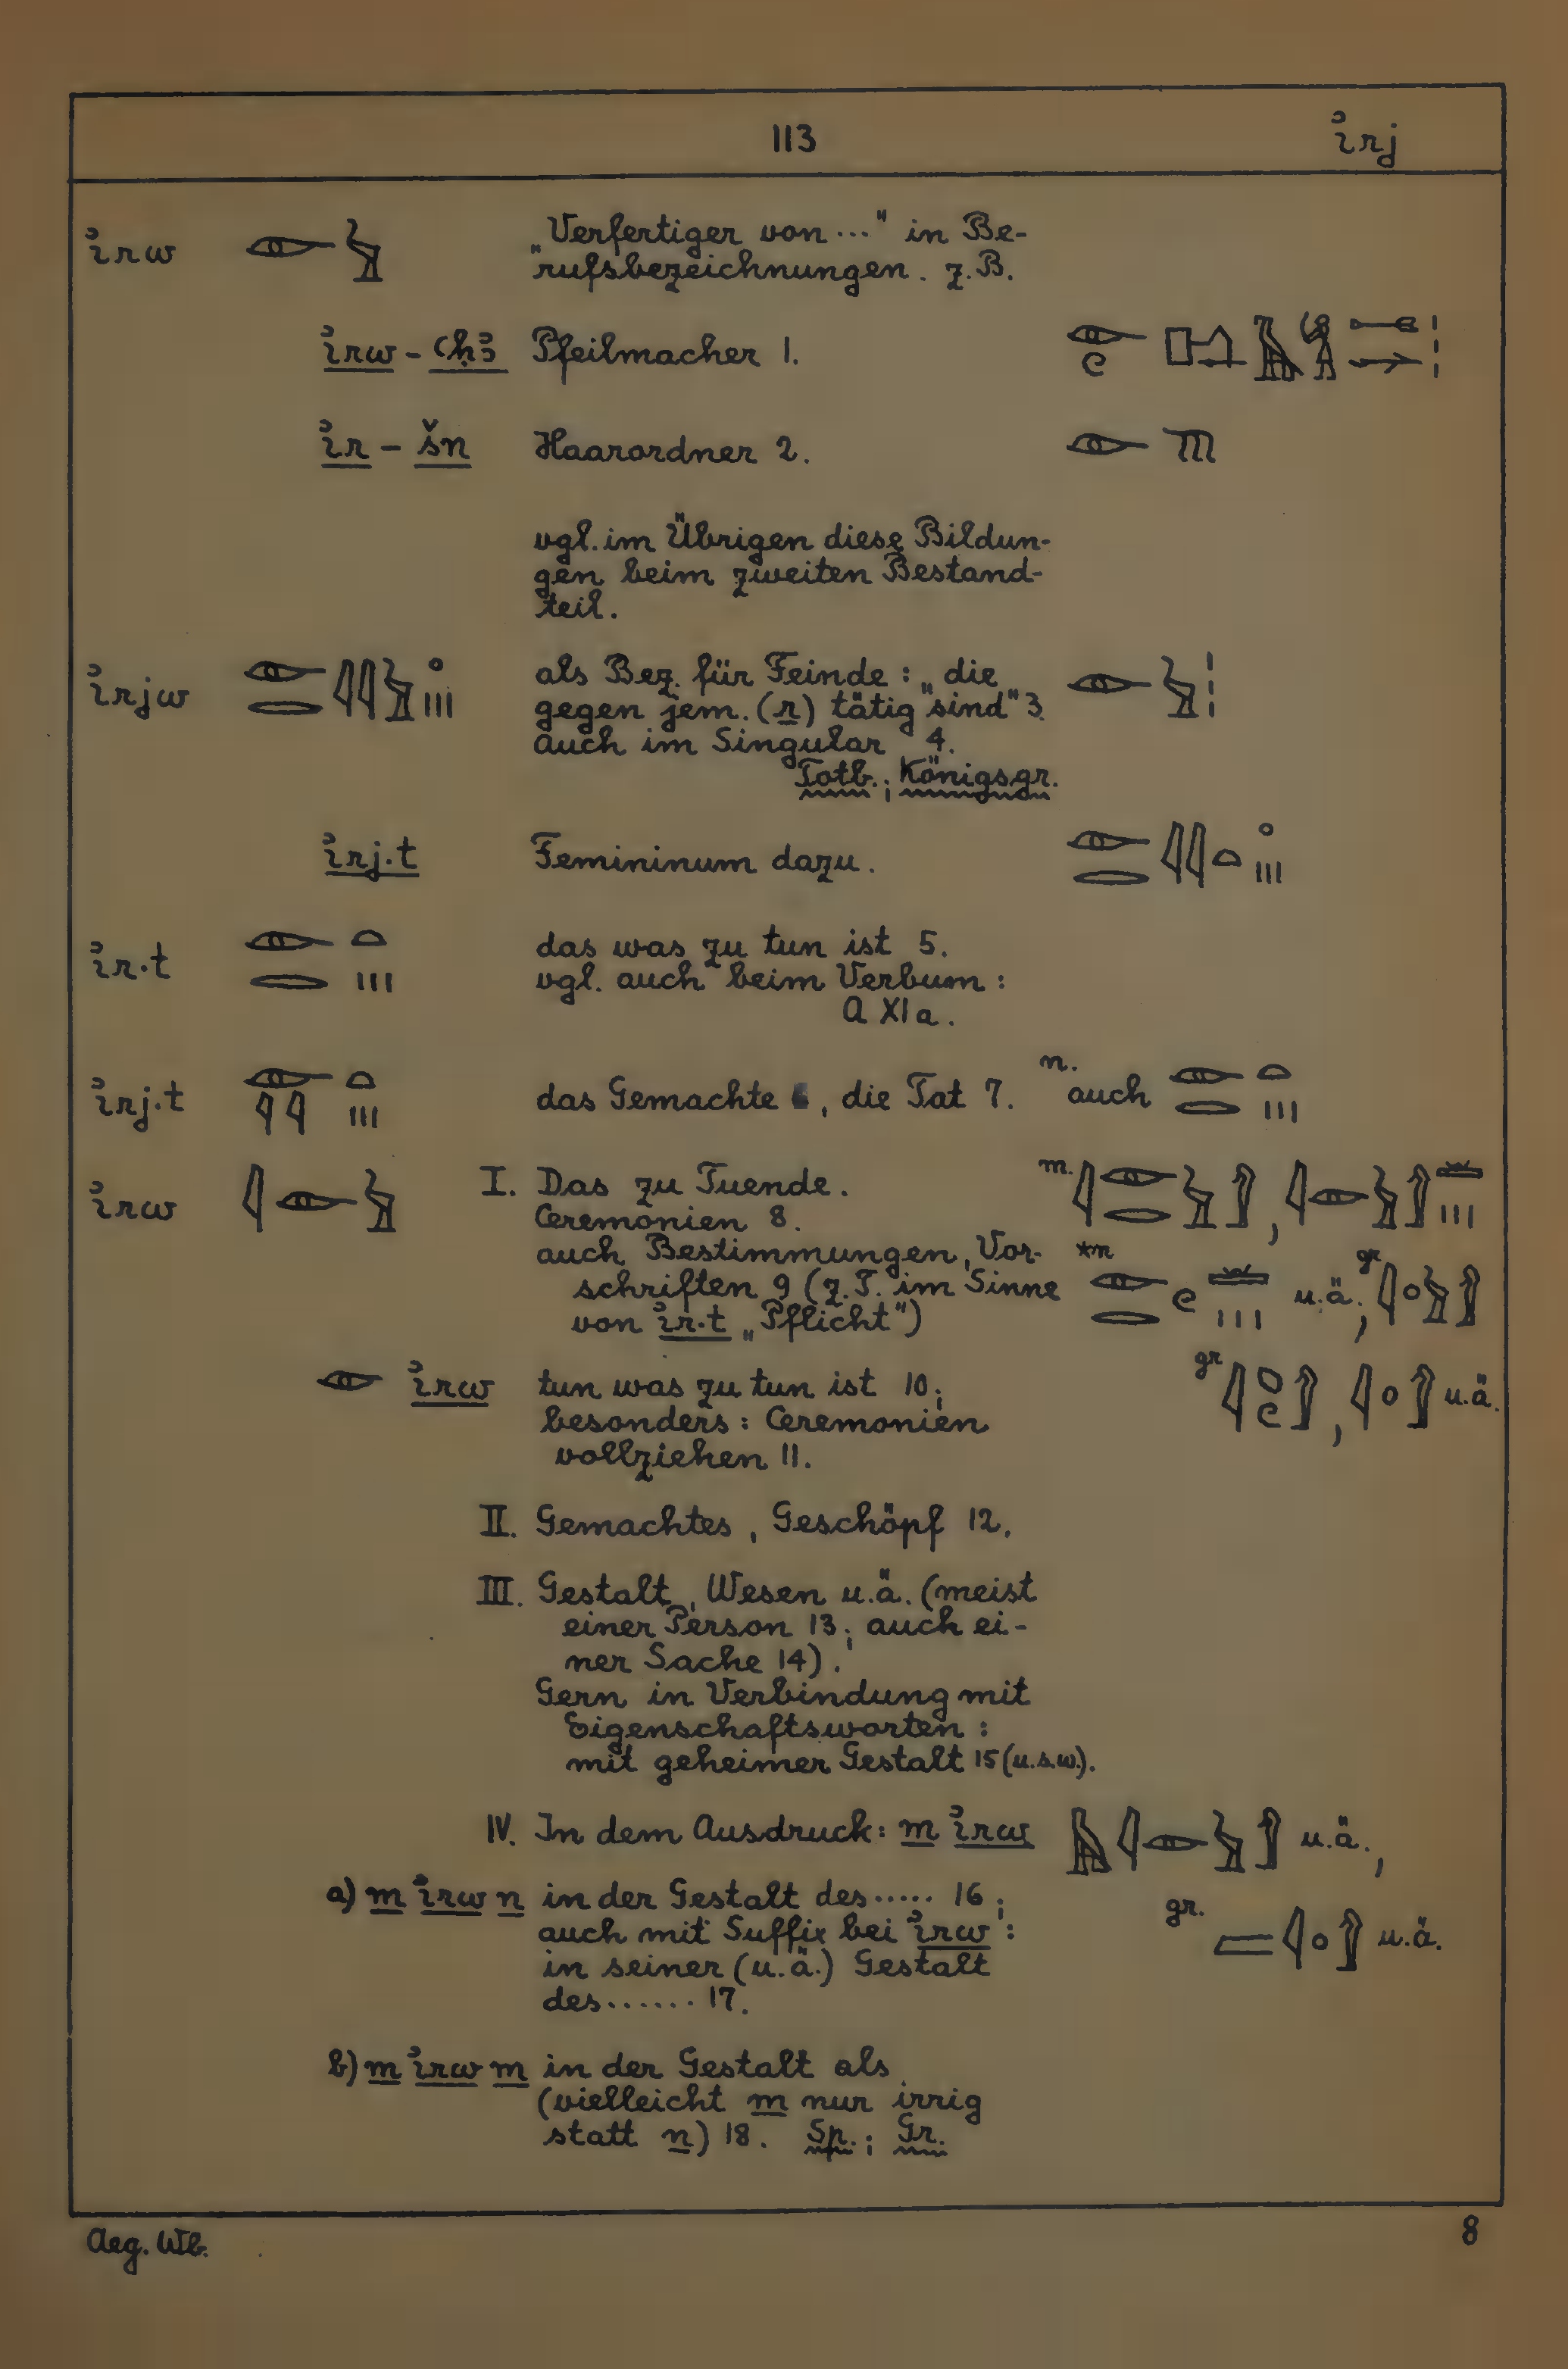 113 ꞽrj
ꞽrw „Verfertiger von ..." in Be-
rufsbezeichnungen. z.B.
ꞽrw - ꜥḥꜣ Pfeilmacher 1.
ꞽr - šn Haarordner 2.
vgl. im Übrigen diese Bildun-
gen beim zweiten Bestand-
teil.
ꞽrjw als Bez. für Feinde: „die
gegen jem. (r) tätig sind" 3.
auch im Singular 4.
Totb.; Königsgr.
ꞽrj.t Femininum dazu.
ꞽr.t das was zu tun ist 5.
vgl. auch beim Verbum:
A XIa.
ꞽrj.t das Gemachte 6, die Tat 7. n. auch
ꞽrw I. Das zu Tuende. m.
Ceremonien 8.
auch Bestimmungen, Vor-
schriften 9 (z.T. im Sinne u.ä., gr
von ꞽr.t „Pflicht")
ꞽrw tun was zu tun ist 10; gr u.ä.
besonders: Ceremonien
vollziehen 11.
II. Gemachtes, Geschöpf 12.
III. Gestalt, Wesen u.ä. (meist
einer Person 13; auch ei-
ner Sache 14).
Gern in Verbindung mit
Eigenschaftsworten:
mit geheimer Gestalt 15 (u.s.w.).
IV. In dem Ausdruck: m ꞽrw u.ä.,
a) m ꞽrw n in der Gestalt des ..... 16; gr. u.ä.
auch mit Suffix bei ꞽrw:
in seiner (u.ä.) Gestalt
des ...... 17.
b) m ꞽrw m in der Gestalt als
(vielleicht m nur irrig
statt n) 18. Sp.; Gr.
Aeg. Wb. 8